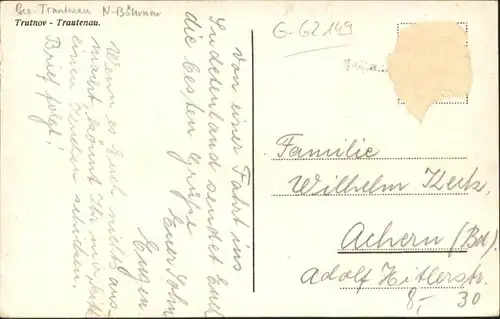 Bez. Trautenau N-Böhmen
Trutnov - Trautenau.
G-62149
Von einer Fahrt ins
Sudetenland sendet Euch
die besten Grüße
Euer Sohn
Eugen.
Wenn es Euch nichts aus-
macht, könnt Ihr mir bitte
einen senden schicken.
Brief folgt!
Familie
Wilhelm Keck,
Achern (Bd).
Adolf Hitlerstr.
8,- 30